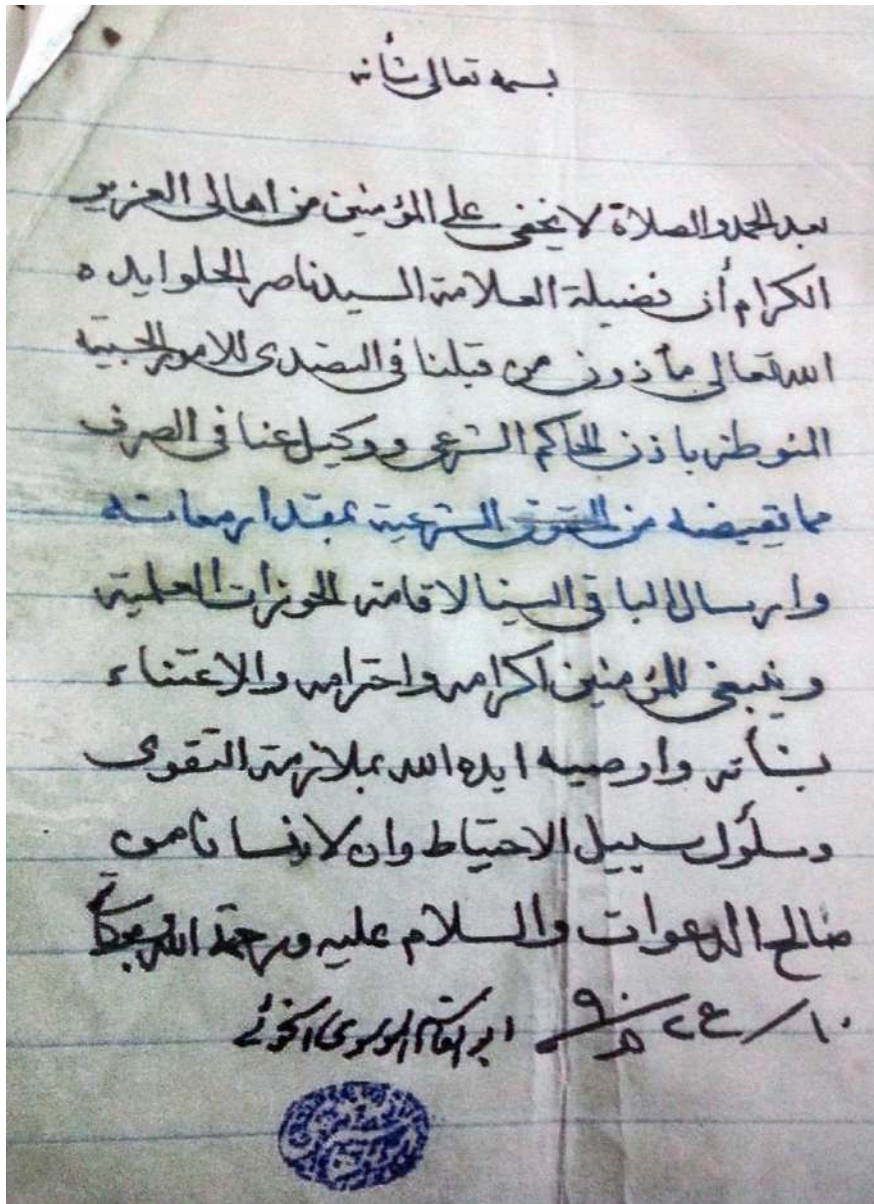 بسمه تعالى شأنه
بعد الحمد والصلاة لا يخفى على المؤمنين من اهالى العزير
الكرام أن فضيلة العلامة السيد ناصر الحلو ايده
الله تعالى مأذون من قبلنا فى التصدى للامور الحسبية
المنوطة باذن الحاكم الشرعى ووكيل عنا فى الصرف
مما يقبضه من الحقوق الشرعية بمقدار معاشه
وارسال الباقى الينا لاقامة الحوزات العلمية
وينبغى للمؤمنين اكرامه واحترامه والاعتناء
بشأنه واوصيه ايده الله بملازمة التقوى
وسلوك سبيل الاحتياط وان لا ينسانا من
صالح الدعوات والسلام عليه ورحمة الله وبركاته
ابو القاسم الموسوى الخوئى